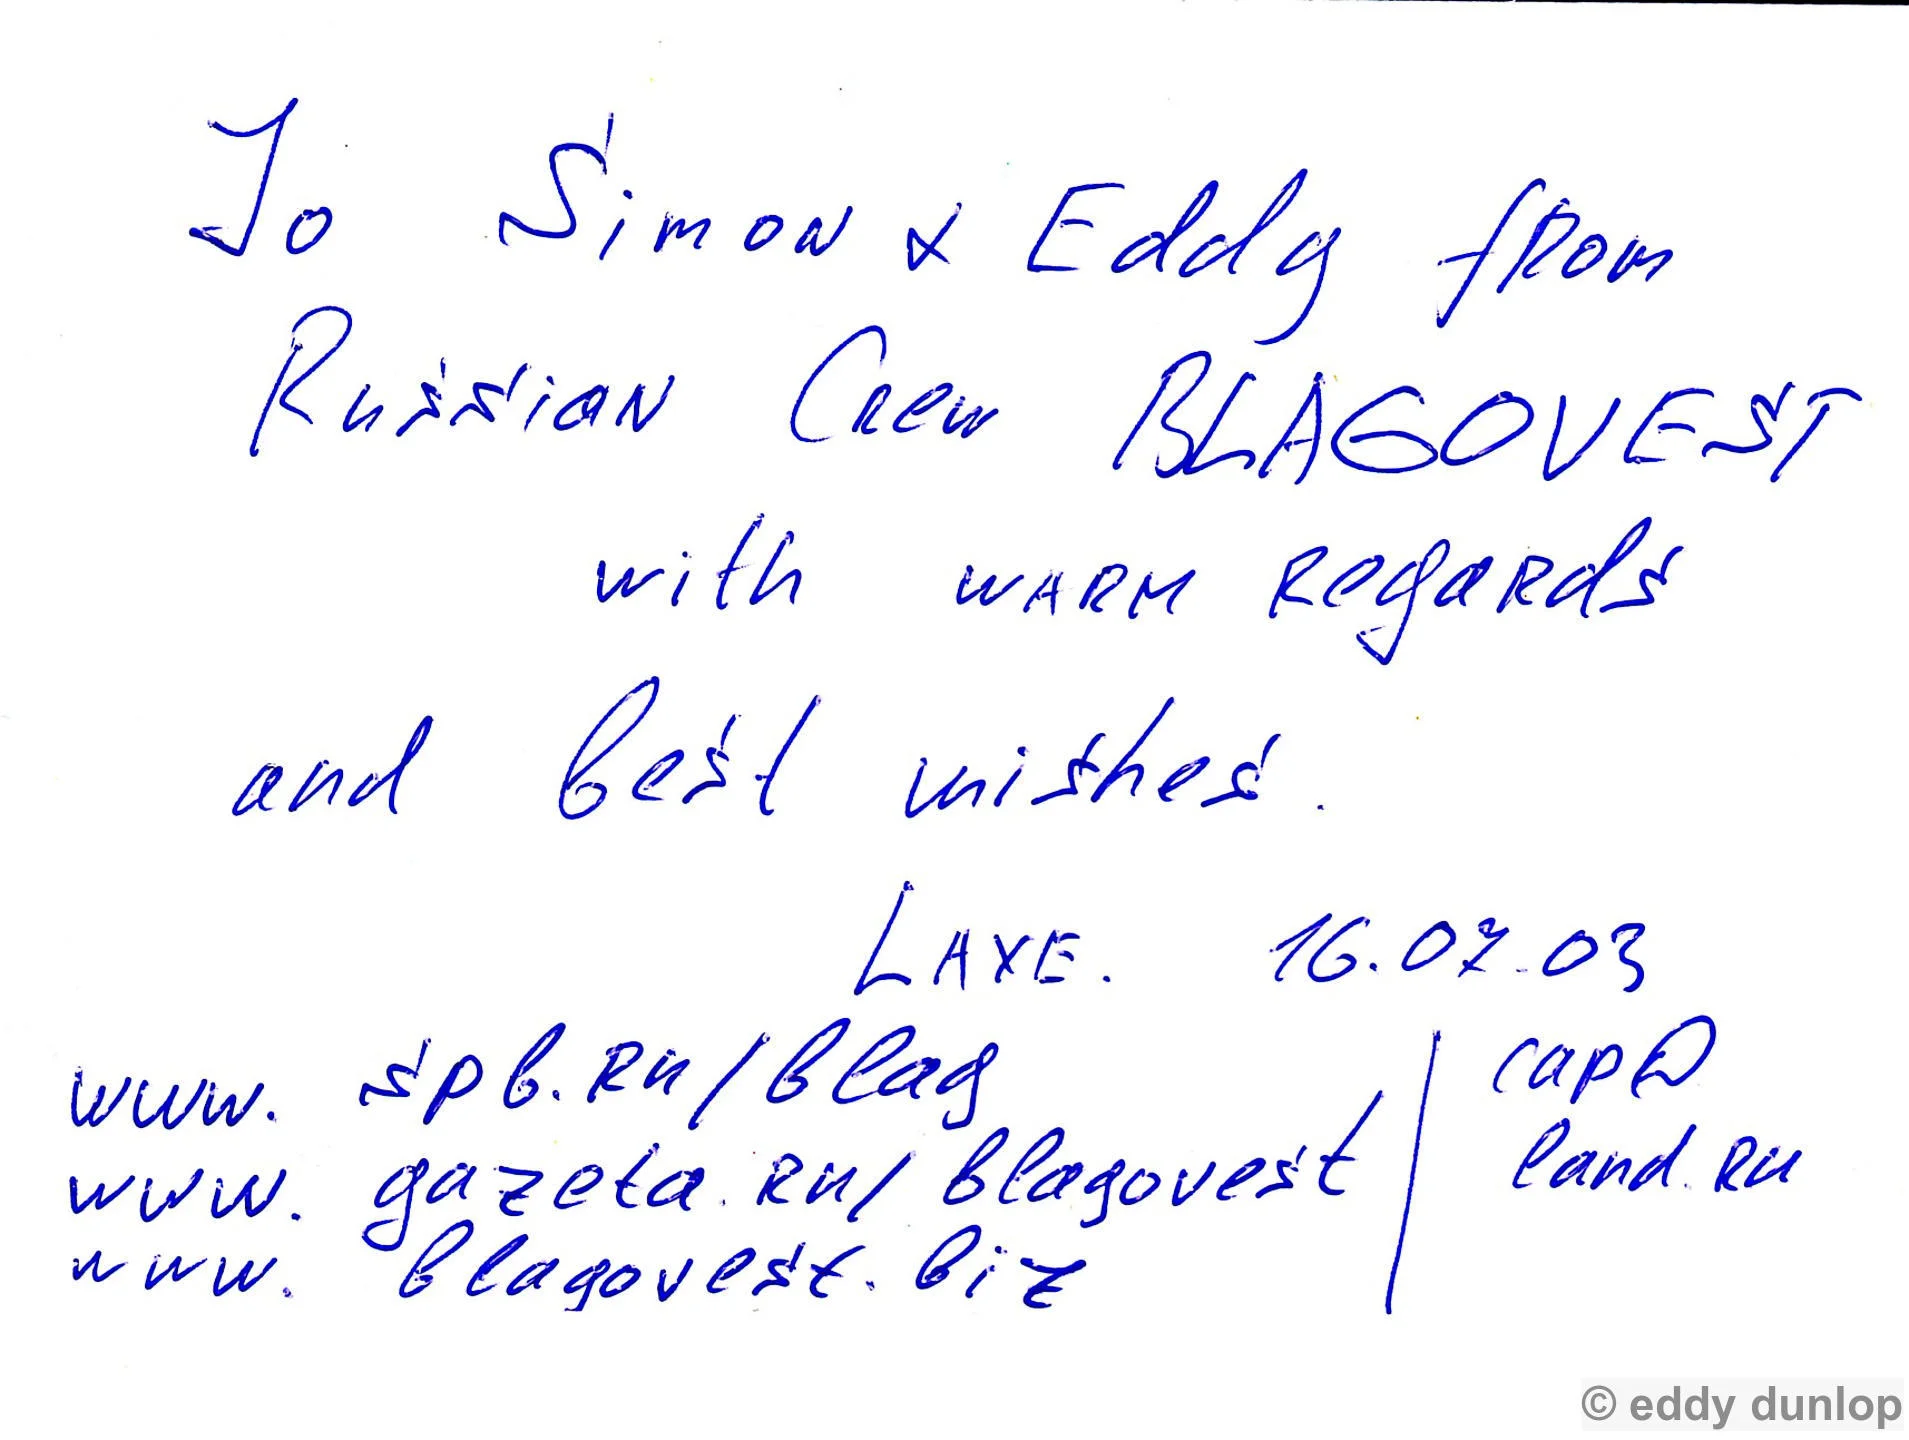 To Simon & Eddy from
Russian Crew BLAGOVEST
with warm regards
and best wishes.
LAXE. 16.07.03
www. spb.ru/blag
www. gazeta.ru/blagovest
www. blagovest.biz
cap@
land.ru
© eddy dunlop